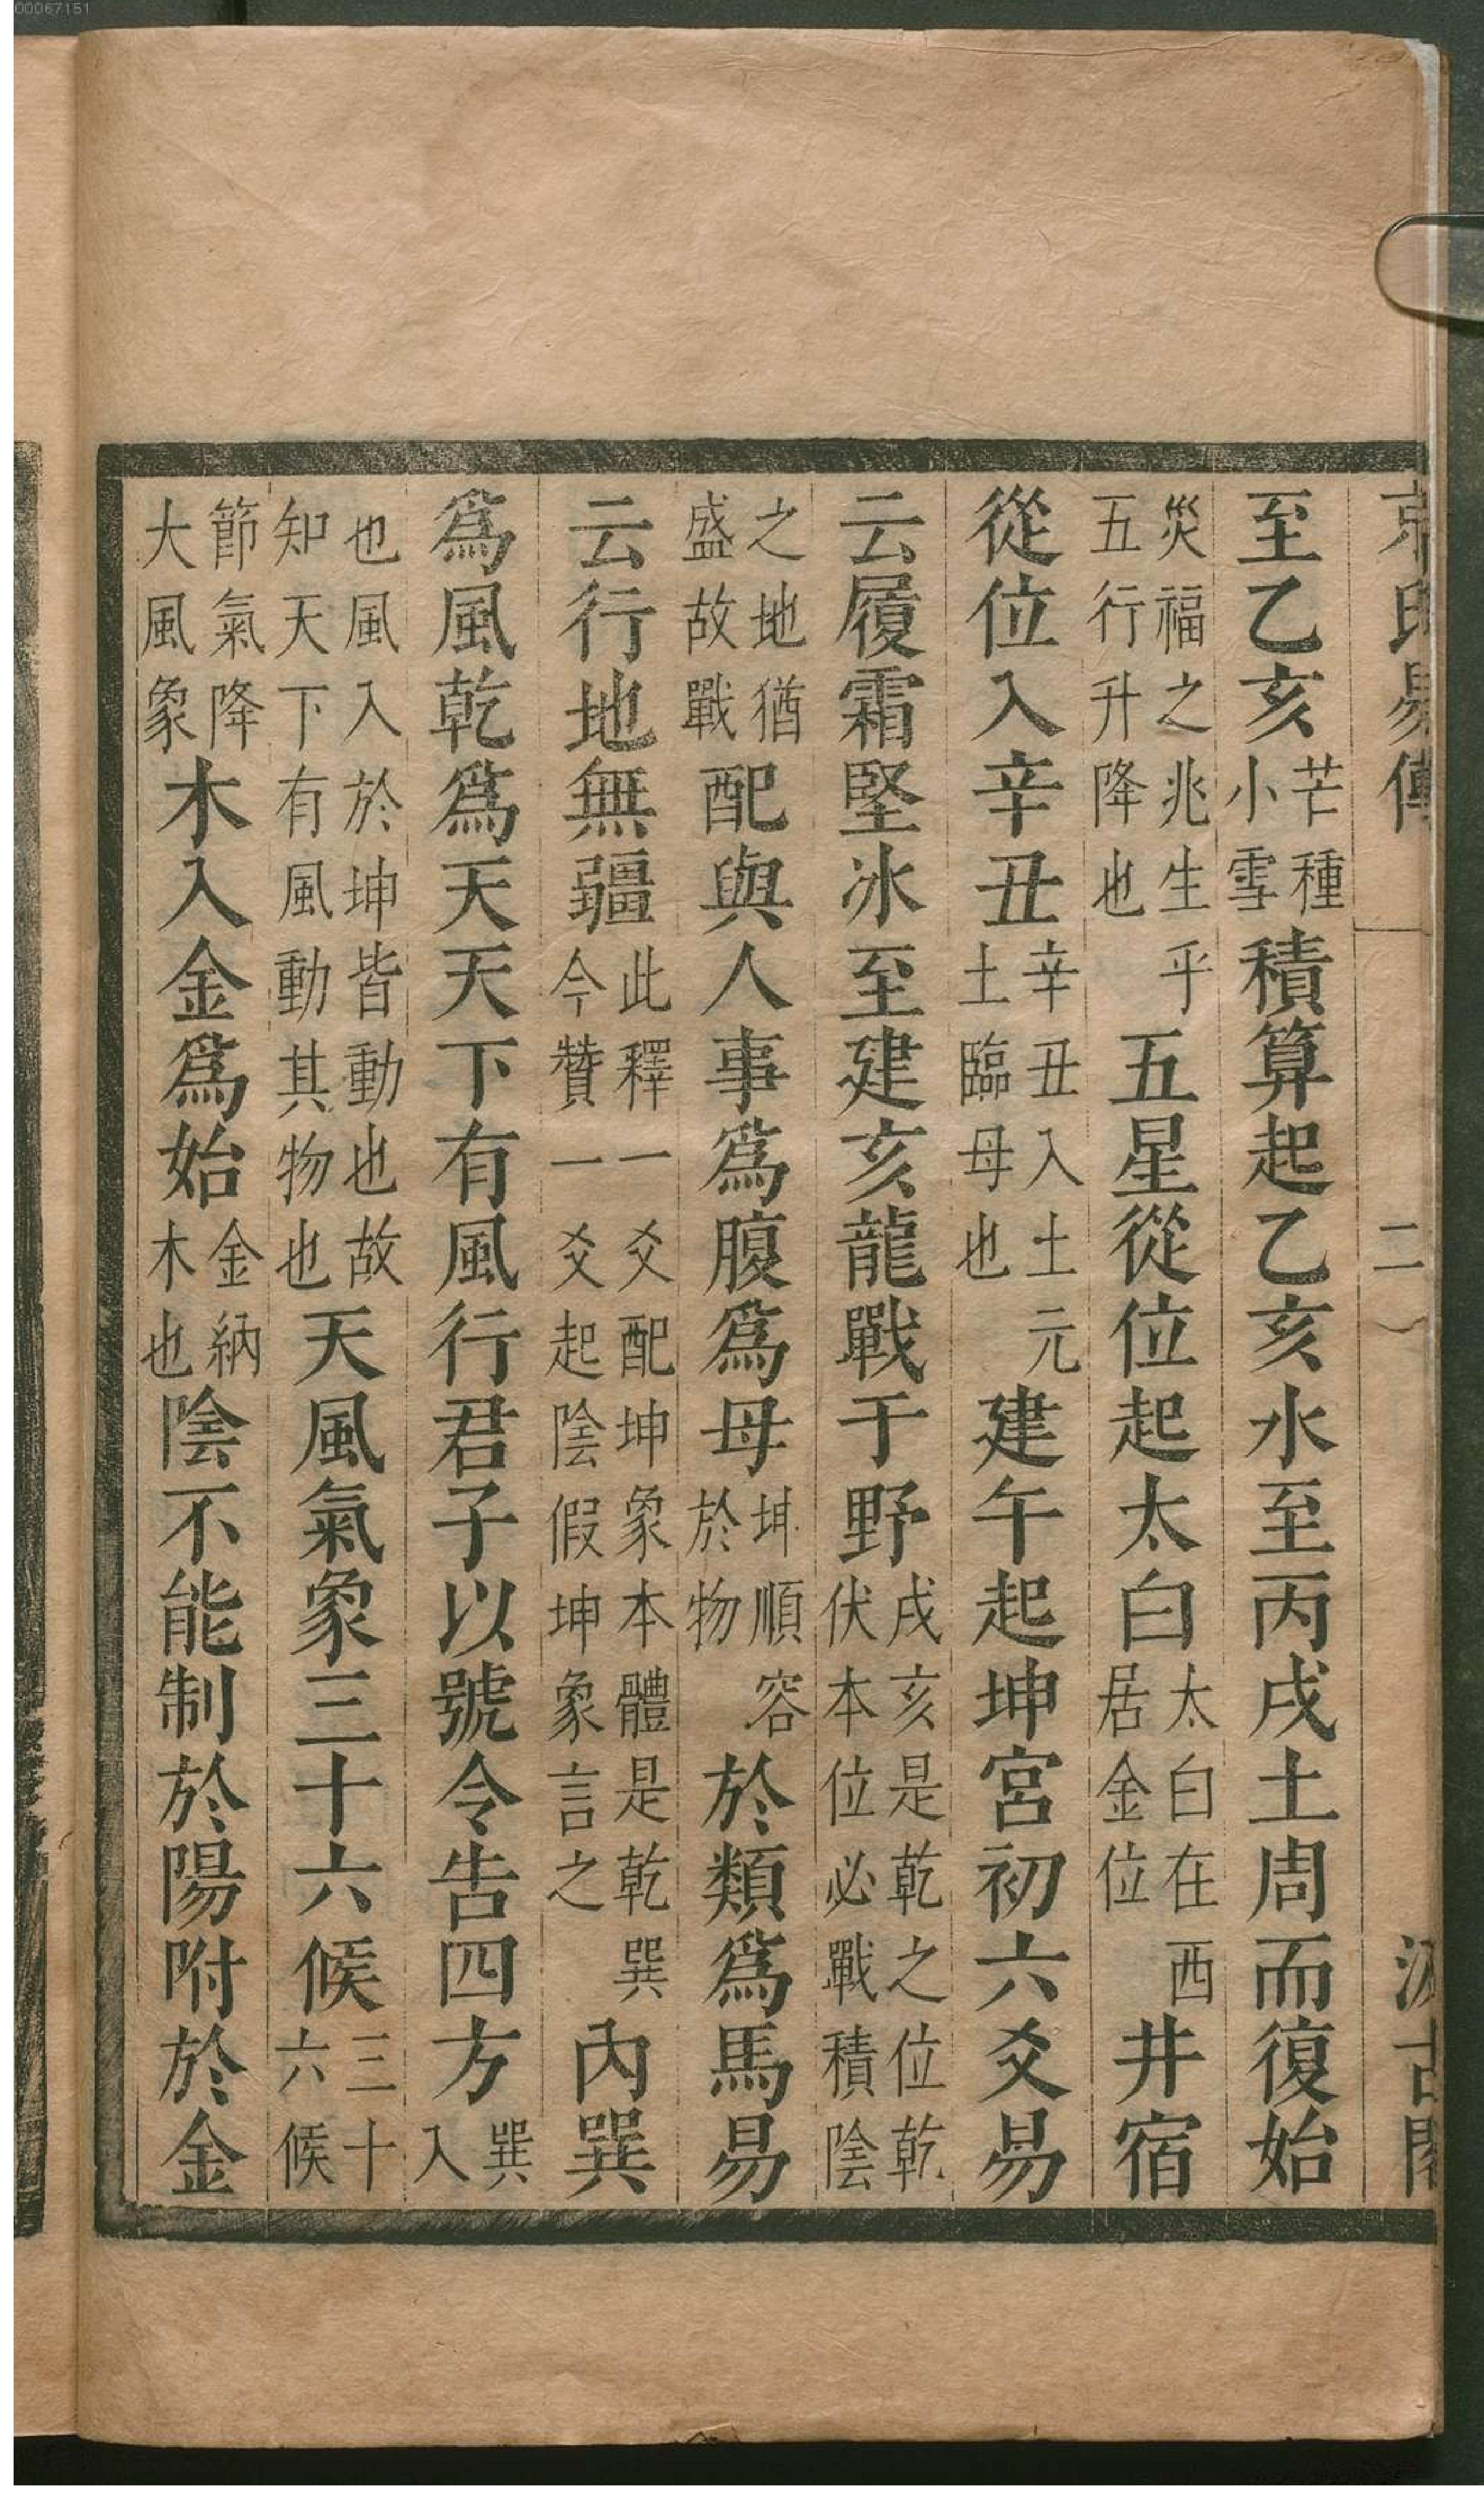 00067151
京氏易傳 二 汲古閣
至乙亥芒種小雪積算起乙亥水至丙戌土周而復始
災福之兆生乎五行升降也五星從位起太白太白在西居金位井宿
從位入辛丑辛丑入土元土臨母也建午起坤宮初六爻易
云履霜堅冰至建亥龍戰于野戌亥是乾之位乾伏本位必戰積陰
之地猶盛故戰配與人事爲腹爲母坤順容於物於類爲馬易
云行地無疆此釋一爻配坤象本體是乾巽今贊一爻起陰假坤象言之內巽
爲風乾爲天天下有風行君子以號令告四方巽入
也風入於坤皆動也故知天下有風動其物也天風氣象三十六候三十六候
節氣降大風象木入金爲始金納木也陰不能制於陽附於金